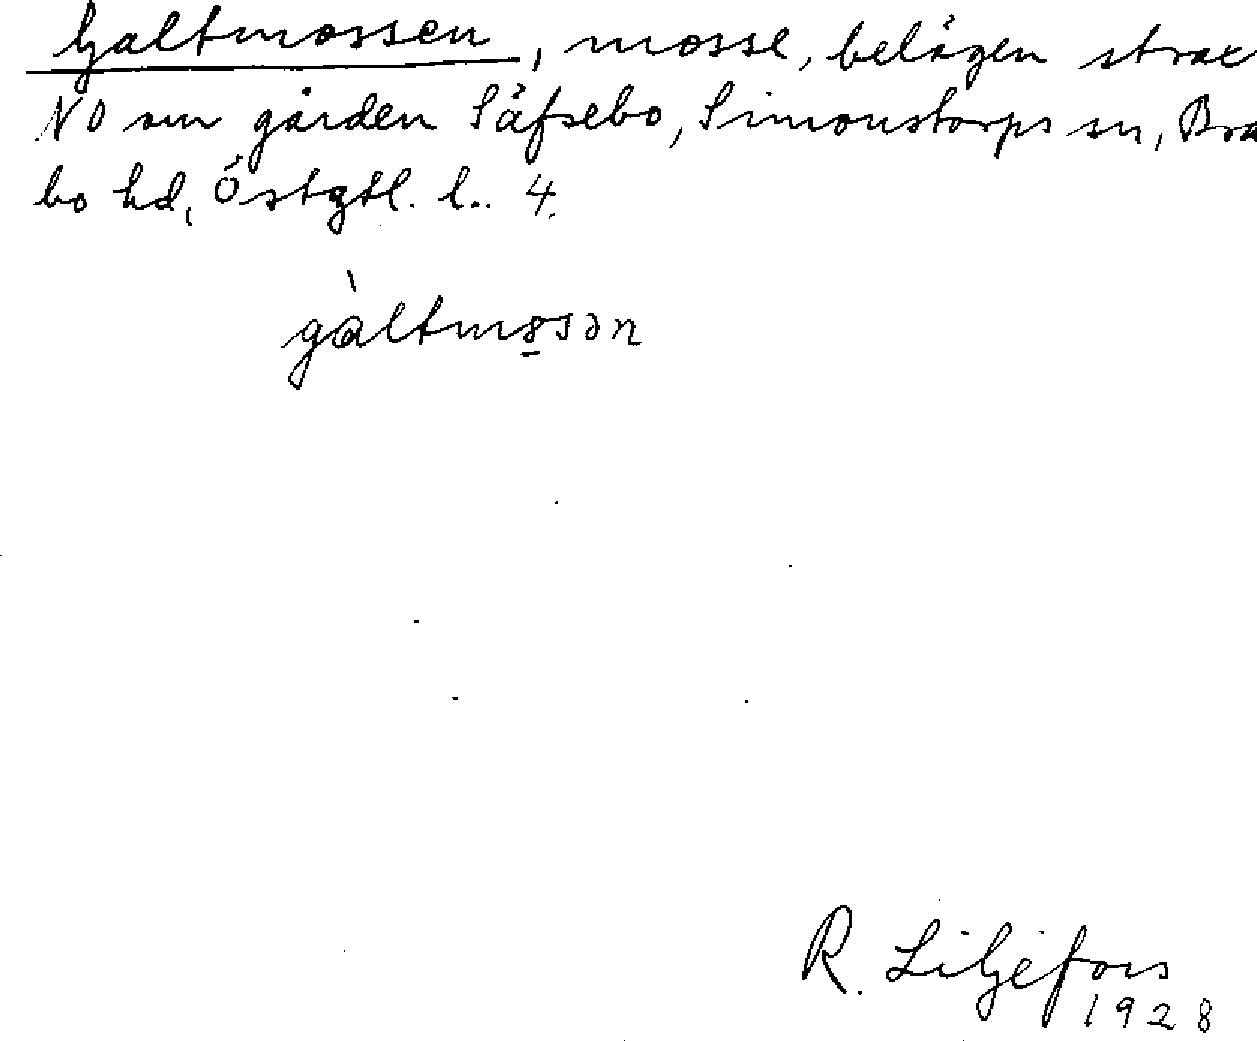 Galtmossen, mosse, belägen strax
NO om gården Säfsebo, Simonstorps sn, Brå
bo hd, Östgtl. l.. 4.
gàltmøsən
R. Liljefors
1928